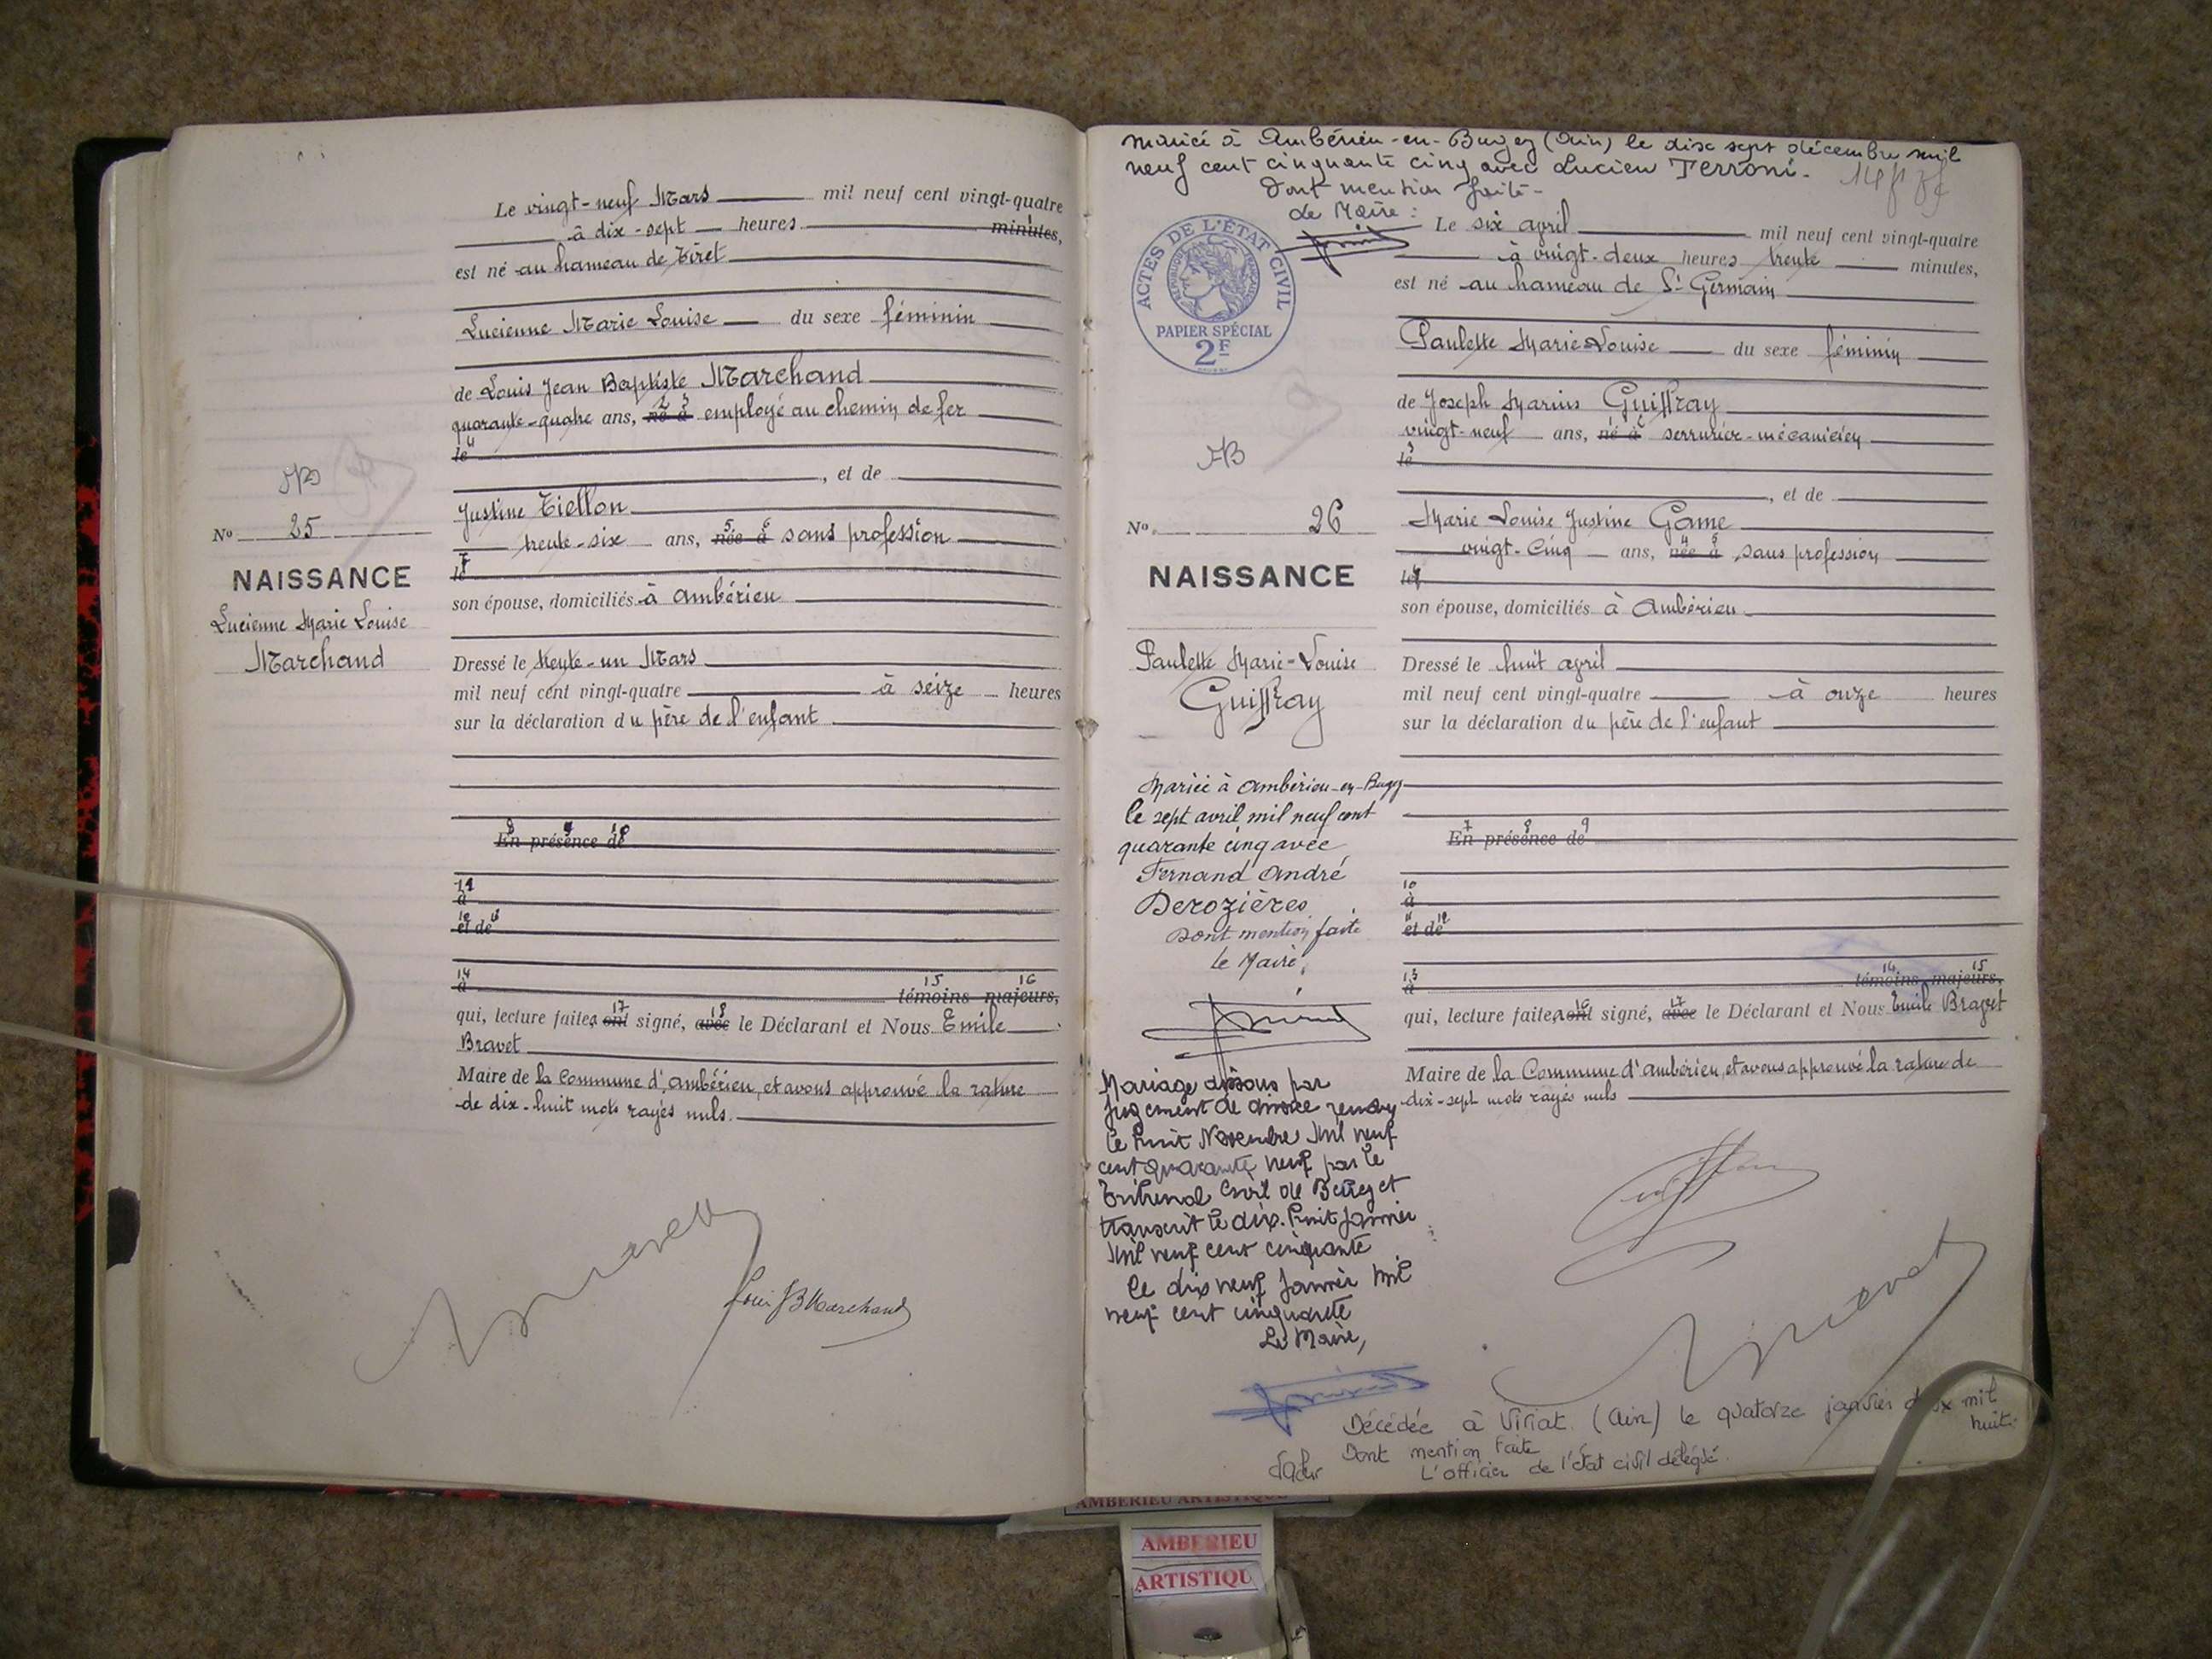 Le vingt-neuf Mars mil neuf cent vingt-quatre
à dix-sept heures minutes,
est né au hameau de Tiret
Lucienne Marie Louise du sexe féminin
de Louis Jean Baptiste Marchand
quarante-quatre ans, né à employé au chemin de fer
le
, et de
Justine Tiellon
trente-six ans, née à sans profession
le
son épouse, domiciliés à Ambérieu
Dressé le trente-un Mars
mil neuf cent vingt-quatre à seize heures
sur la déclaration du père de l'enfant
En présence de
à
et de
à témoins majeurs,
qui, lecture faite, ont signé, avec le Déclarant et Nous Emile
Bravet
Maire de la Commune d'Ambérieu, et avons approuvé la rature
de dix-huit mots rayés nuls.
Nº 25
NAISSANCE
Lucienne Marie Louise
Marchand
Louis JB Marchand
Mariée à Ambérieu-en-Bugey (Ain) le dix sept décembre mil
neuf cent cinquante cinq avec Lucien Terroni.
Dont mention faite
Le Maire :
ACTES DE L'ÉTAT CIVIL
RÉPUBLIQUE FRANÇAISE
PAPIER SPÉCIAL
2F
Le six avril mil neuf cent vingt-quatre
à vingt-deux heures trente minutes,
est né au hameau de St Germain
Paulette Marie-Louise du sexe féminin
de Joseph Marius Guiffray
vingt-neuf ans, né à serrurier-mécanicien
le
, et de
Marie Louise Justine Game
vingt-cinq ans, née à sans profession
le
son épouse, domiciliés à Ambérieu
Dressé le huit avril
mil neuf cent vingt-quatre à onze heures
sur la déclaration du père de l'enfant
En présence de
à
et de
à témoins majeurs,
qui, lecture faite, ont signé, avec le Déclarant et Nous Emile Bravet
Maire de la Commune d'Ambérieu, et avons approuvé la rature de
dix-sept mots rayés nuls
Nº 26
NAISSANCE
Paulette Marie-Louise
Guiffray
Mariée à Ambérieu-en-Bugey
le sept avril mil neuf cent
quarante cinq avec
Fernand André
Derozières
Dont mention faite
Le Maire,
Mariage dissous par
jugement de divorce rendu
le huit Novembre Mil neuf
cent quarante neuf par le
Tribunal Civil de Belley et
transcrit le dix-huit Janvier
Mil neuf cent cinquante
Le dix neuf Janvier Mil
neuf cent cinquante
Le Maire,
Bravet
Décédée à Viriat (Ain) le quatorze janvier deux mil
huit.
Dont mention faite
L'officier de l'état civil délégué.
AMBERIEU ARTISTIQUE
AMBERIEU
ARTISTIQU